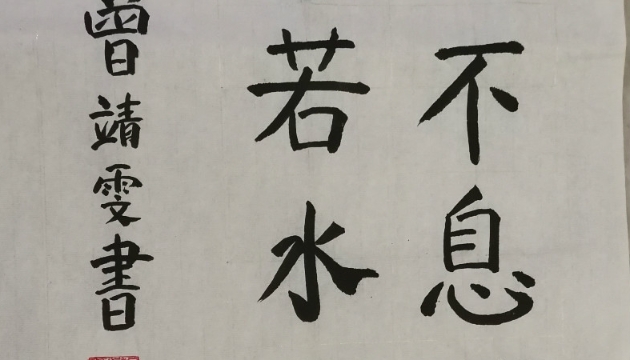 不息
若水
曾靖雯書